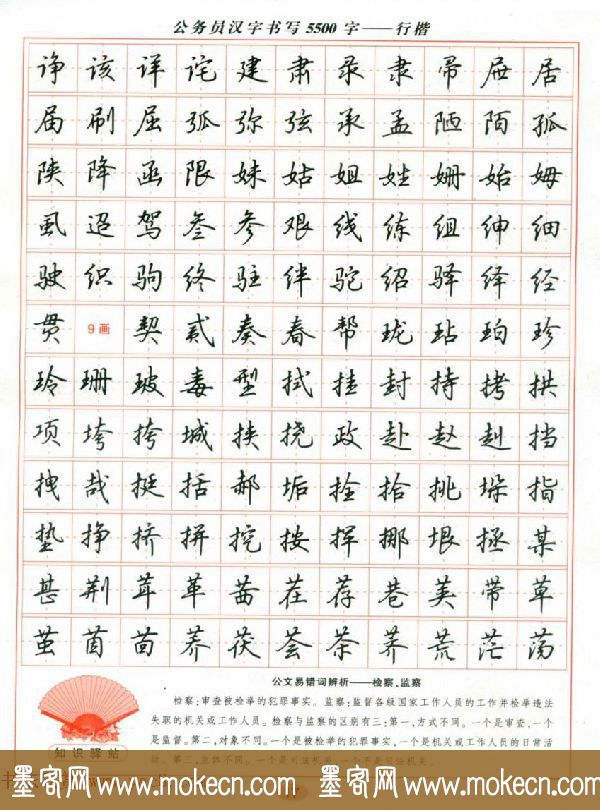 公务员汉字书写5500字——行楷
诤 该 详 诧 建 肃 录 隶 帚 屉 居
届 刷 屈 弧 弥 弦 承 孟 陋 陌 孤
陕 降 函 限 妹 姑 姐 姓 姗 始 姆
虱 迢 驾 叁 参 艰 线 练 组 绅 细
驶 织 驹 终 驻 绊 驼 绍 驿 绎 经
贯 9画 契 贰 奏 春 帮 珑 玷 珀 珍
玲 珊 玻 毒 型 拭 挂 封 持 拷 拱
项 垮 挎 城 挟 挠 政 赴 赵 赳 挡
拽 哉 挺 括 郝 垢 拴 拾 挑 垛 指
垫 挣 挤 拼 挖 按 挥 挪 垠 拯 某
甚 荆 茸 革 茜 茬 荐 巷 荚 带 草
茧 茵 茴 荞 茯 荟 茶 荠 荒 茫 荡
公文易错词辨析——检察、监察
检察:审查被检举的犯罪事实。监察:监督各级国家工作人员的工作并检举违法
失职的机关或工作人员。检察与监察的区别有三:第一,方式不同。一个是审查,一个
是监督。第二,对象不同。一个是被检举的犯罪事实,一个是机关或工作人员的日常活
动。第三,主体不同。一个是司法机关,一个不是司法机关。
知识驿站
墨客网 www.mokecn.com 墨客网 www.mokecn.com